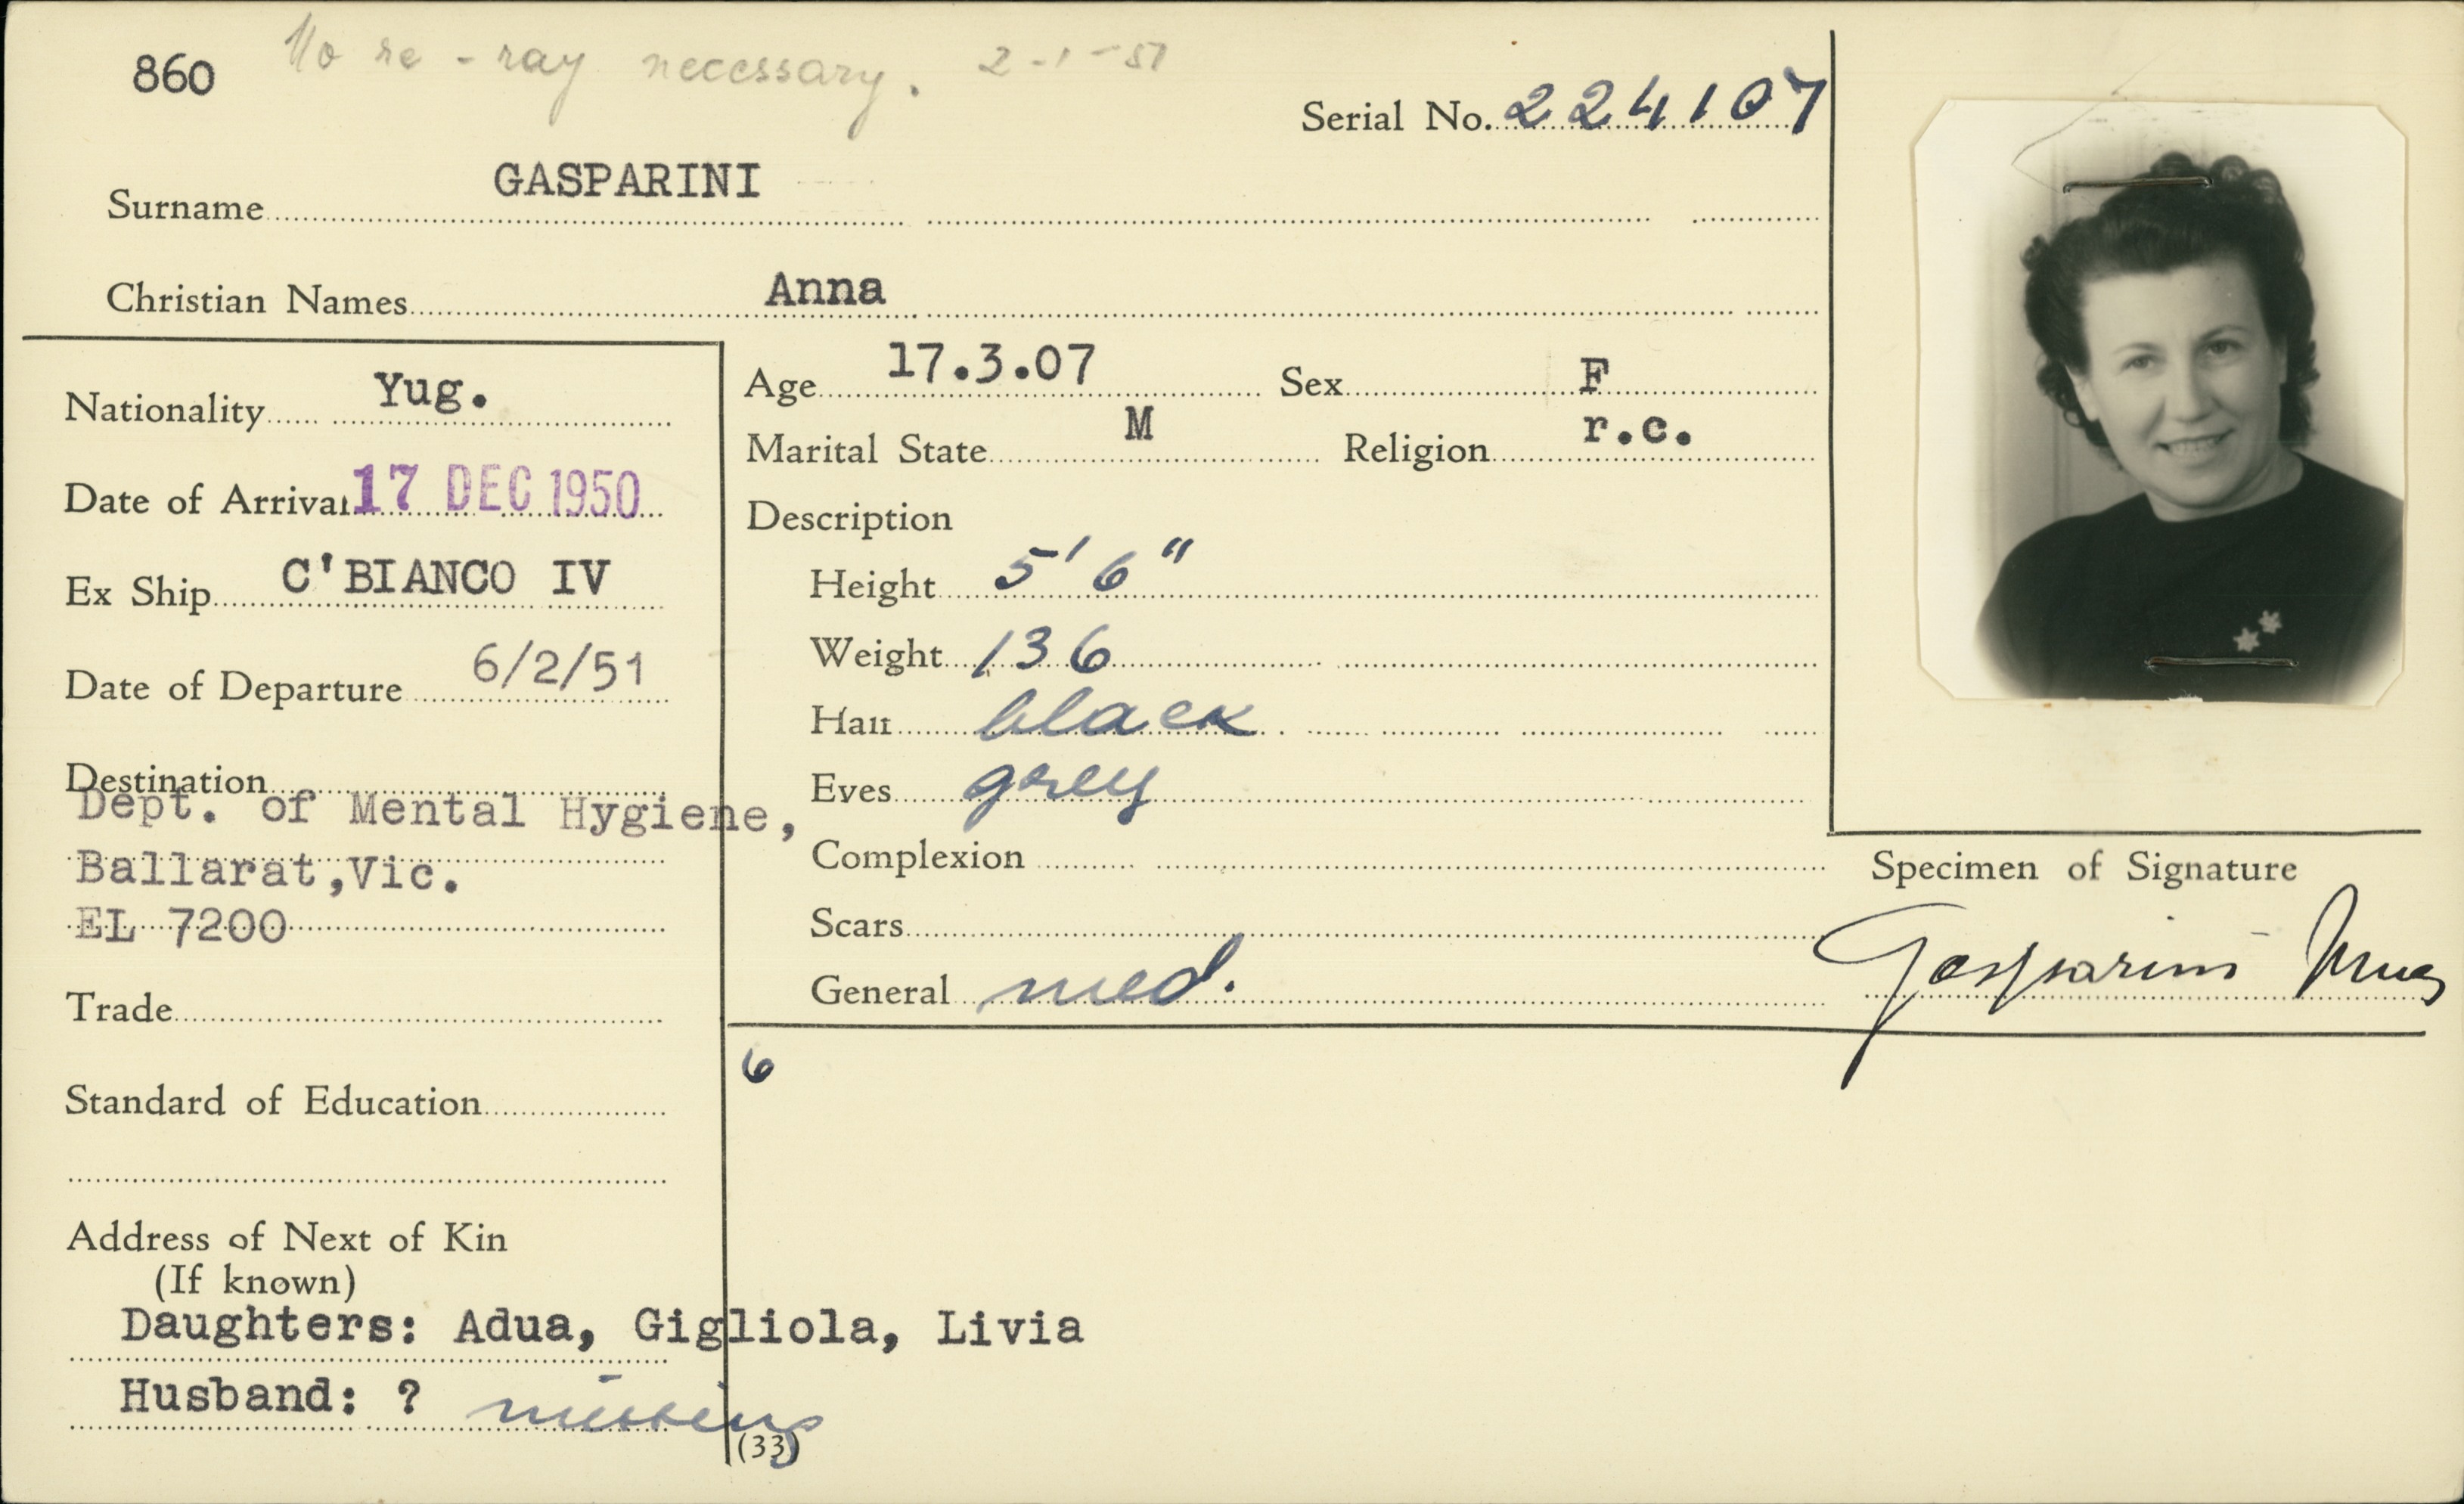 860 No re-ray necessary. 2-1-51
Serial No. 224107
Surname GASPARINI
Christian Names Anna
Nationality Yug.
Date of Arrival 17 DEC 1950
Ex Ship C'BIANCO IV
Date of Departure 6/2/51
Destination
Dept. of Mental Hygiene,
Ballarat, Vic.
EL 7200
Trade
Standard of Education
Address of Next of Kin
(If known)
Daughters: Adua, Gigliola, Livia
Husband: ? missing
Age 17.3.07 Sex F
Marital State M Religion r.c.
Description
Height 5'6"
Weight 136
Hair black
Eyes grey
Complexion
Scars
General med.
6
(33)
Specimen of Signature
Gasparini Anna